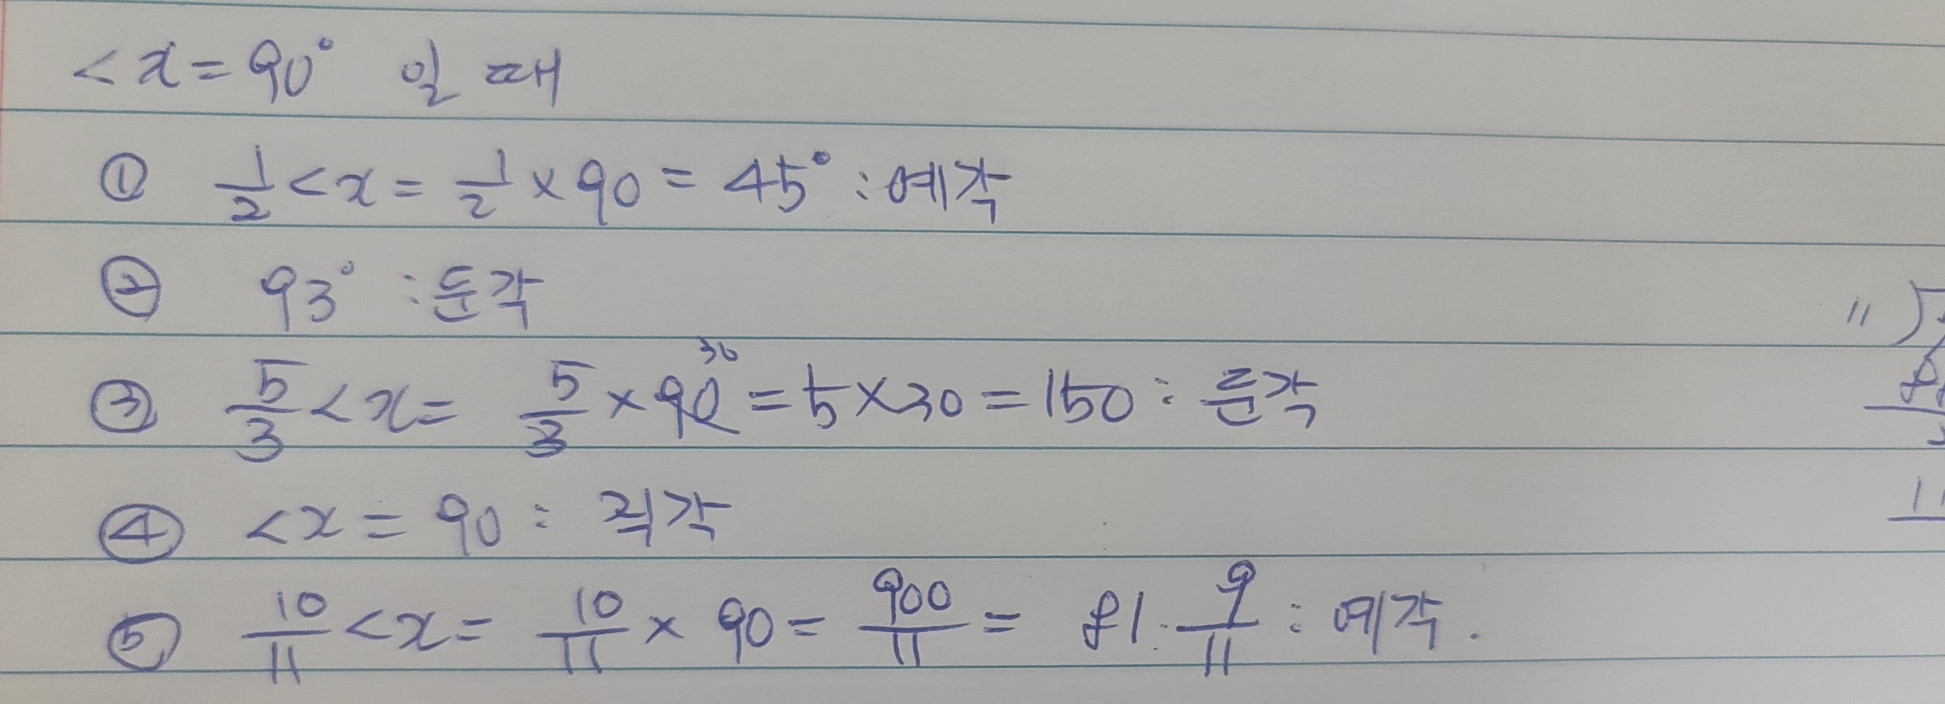 <x=90° 일 때
① 1/2<x= 1/2×90= 45° : 예각
② 93° : 둔각
③ 5/3<x= 5/3×90 30 =5×30=150 : 둔각
④ <x=90 : 직각
⑤ 10/11<x= 10/11×90= 900/11= 81. 9/11 : 예각.
11